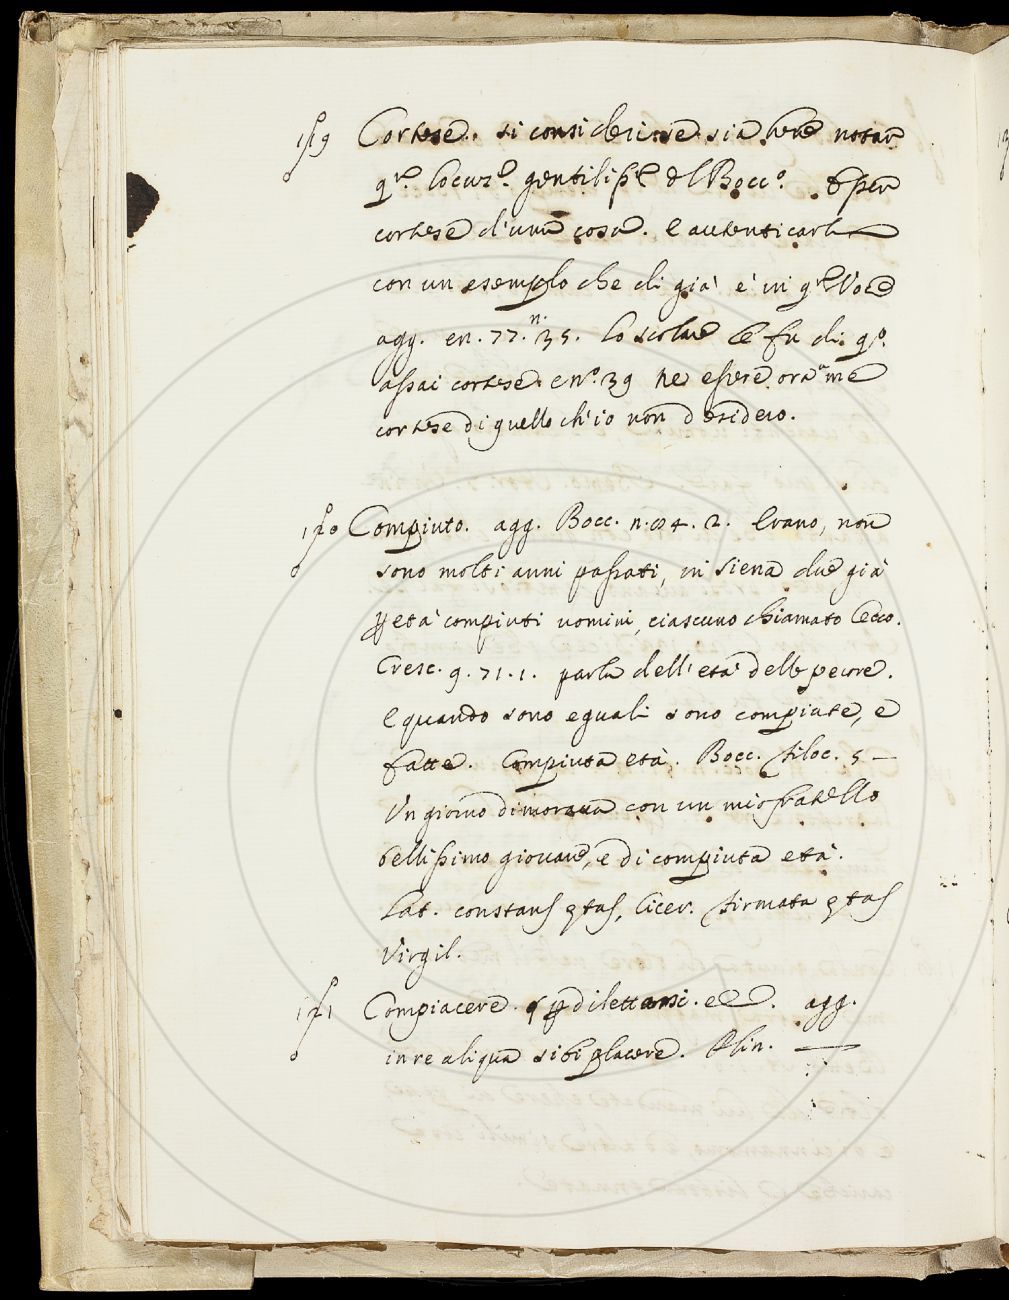 159 Cortese. si consideri se sia bene notar
qta. locuz.e gentiliss.a del Bocc.o Esser
cortese d'una cosa. e autenticarla
con un esemplo che di già è in qta Voce
agg. en. 77. n. 35. lo scolare che fu di qo.
assai cortese. e no. 39 ne essere ora a me
cortese di quello ch'io non desidero.
150 Compiuto. agg. Bocc. n. 84. 2. Erano, non
sono molti anni passati, in Siena due già
p età compiuti uomini, ciascuno chiamato Cecco.
Cresc. 9. 71. 1. parla dell'età delle pecore.
e quando sono eguali sono compiute, e
fatte. Compiuta età. Bocc. filoc. 5 —
Un giorno dimorava con un mio fratello
bellissimo giovane, e di compiuta età.
Lat. constans ętas, Cicer. firmata ętas
Virgil.
151 Compiacere. p dilettarsi. agg.
in re aliqua sibi placere. Plin. —